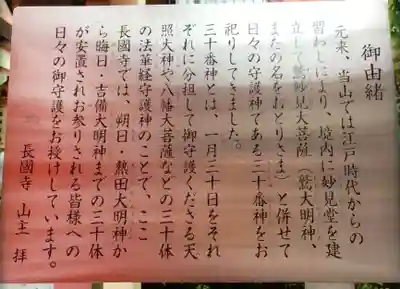 御由緒
元来、当山では江戸時代からの
習わしにより、境内に妙見堂を建
立して鷲妙見大菩薩(鷲大明神、
またの名をおとりさま)と併せて
日々の守護神である三十番神をお
祀りしてきました。
三十番神とは、一月三十日をそれ
ぞれに分担して御守護くださる天
照大神や八幡大菩薩などの三十体
の法華経守護神のことで、ここ
長國寺では、朔日・熱田大明神か
ら晦日・吉備大明神までの三十体
が安置されお参りされる皆様への
日々の御守護をお授けしています。
長國寺 山主 拝